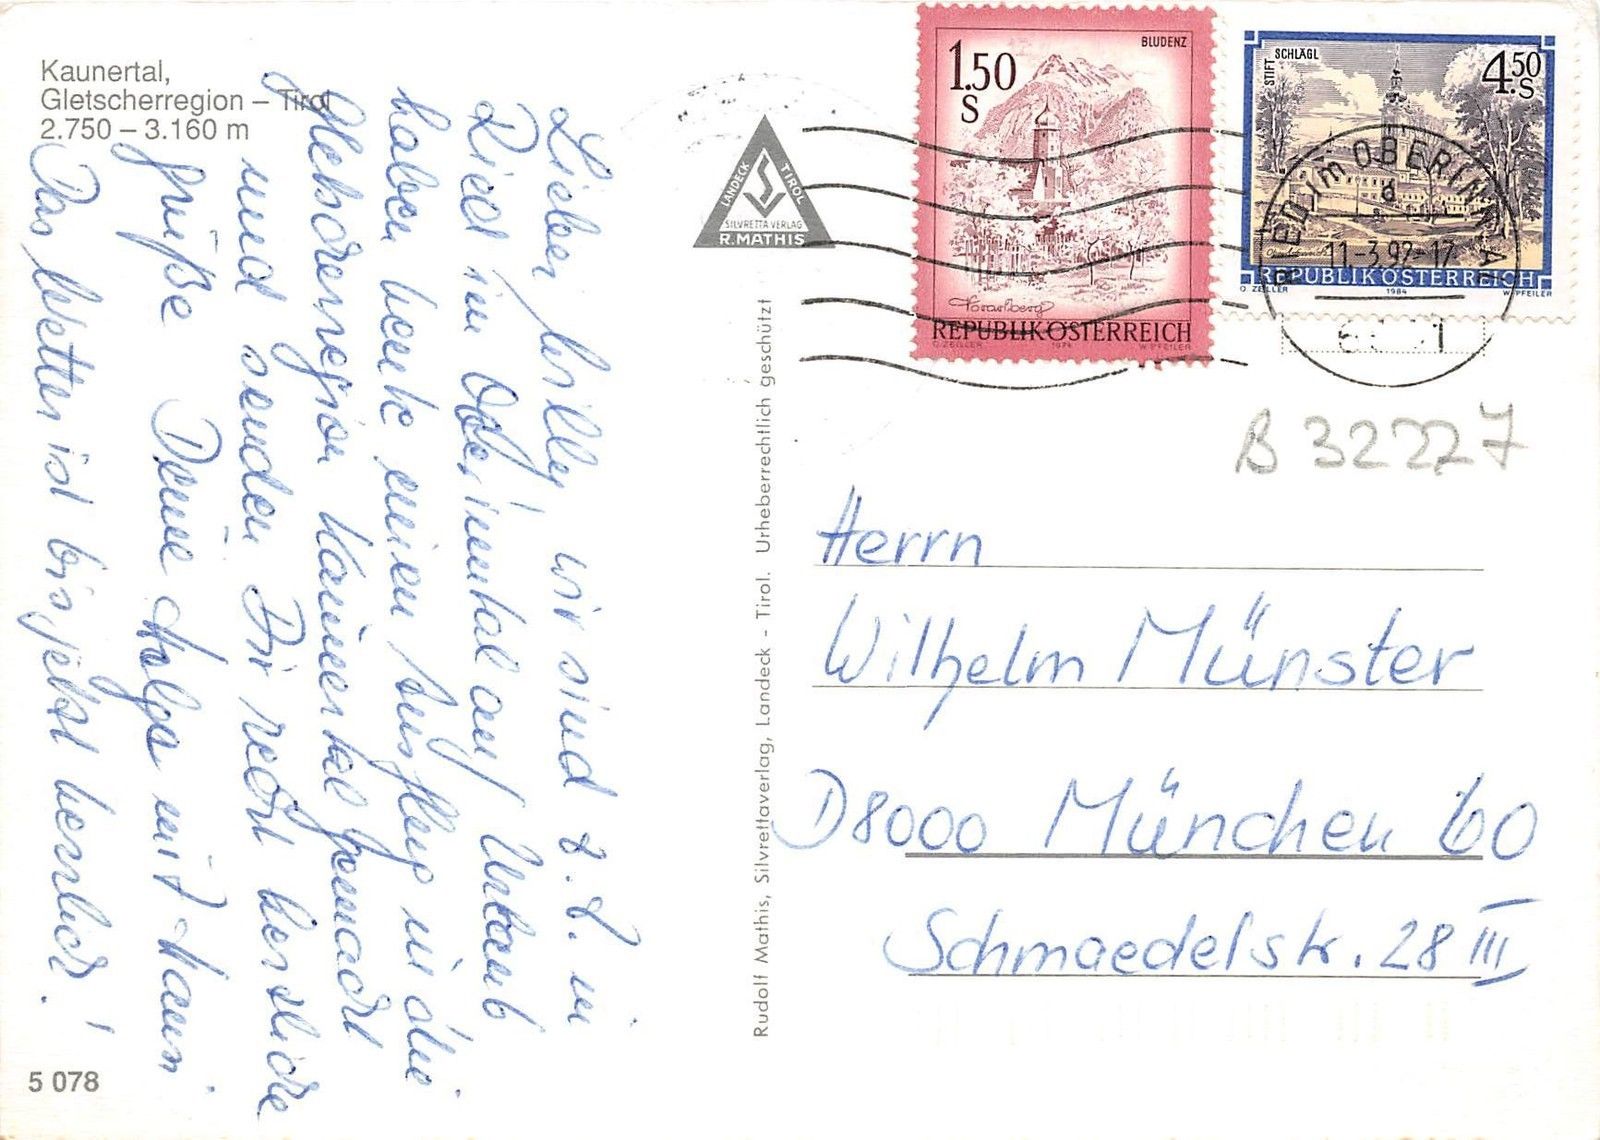 Kaunertal,
Gletscherregion – Tirol
2.750 – 3.160 m
Lieber Willy, wir sind z. Z. in
Ried im Oberinntal auf Urlaub
haben heute einen Ausflug in die
Gletscherregion Kaunertal gemacht
und senden Dir recht herzliche
Grüße Deine Helga mit Mann
Das Wetter ist bis jetzt herrlich!
5 078
LANDECK TIROL
SILVRETTA VERLAG
R. MATHIS
Rudolf Mathis, Silvrettaverlag, Landeck - Tirol. Urheberrechtlich geschützt
1.50
S
BLUDENZ
Vorarlberg
REPUBLIK ÖSTERREICH
O. ZEILLER 1974 W. PFEILER
STIFT SCHLÄGL
4.50
S
REPUBLIK ÖSTERREICH
O. ZEILLER 1984 W. PFEILER
RIED im OBERINNTAL
11.-3.92-17
B 32227
Herrn
Wilhelm Münster
D8000 München 60
Schmaedelstr. 28 III